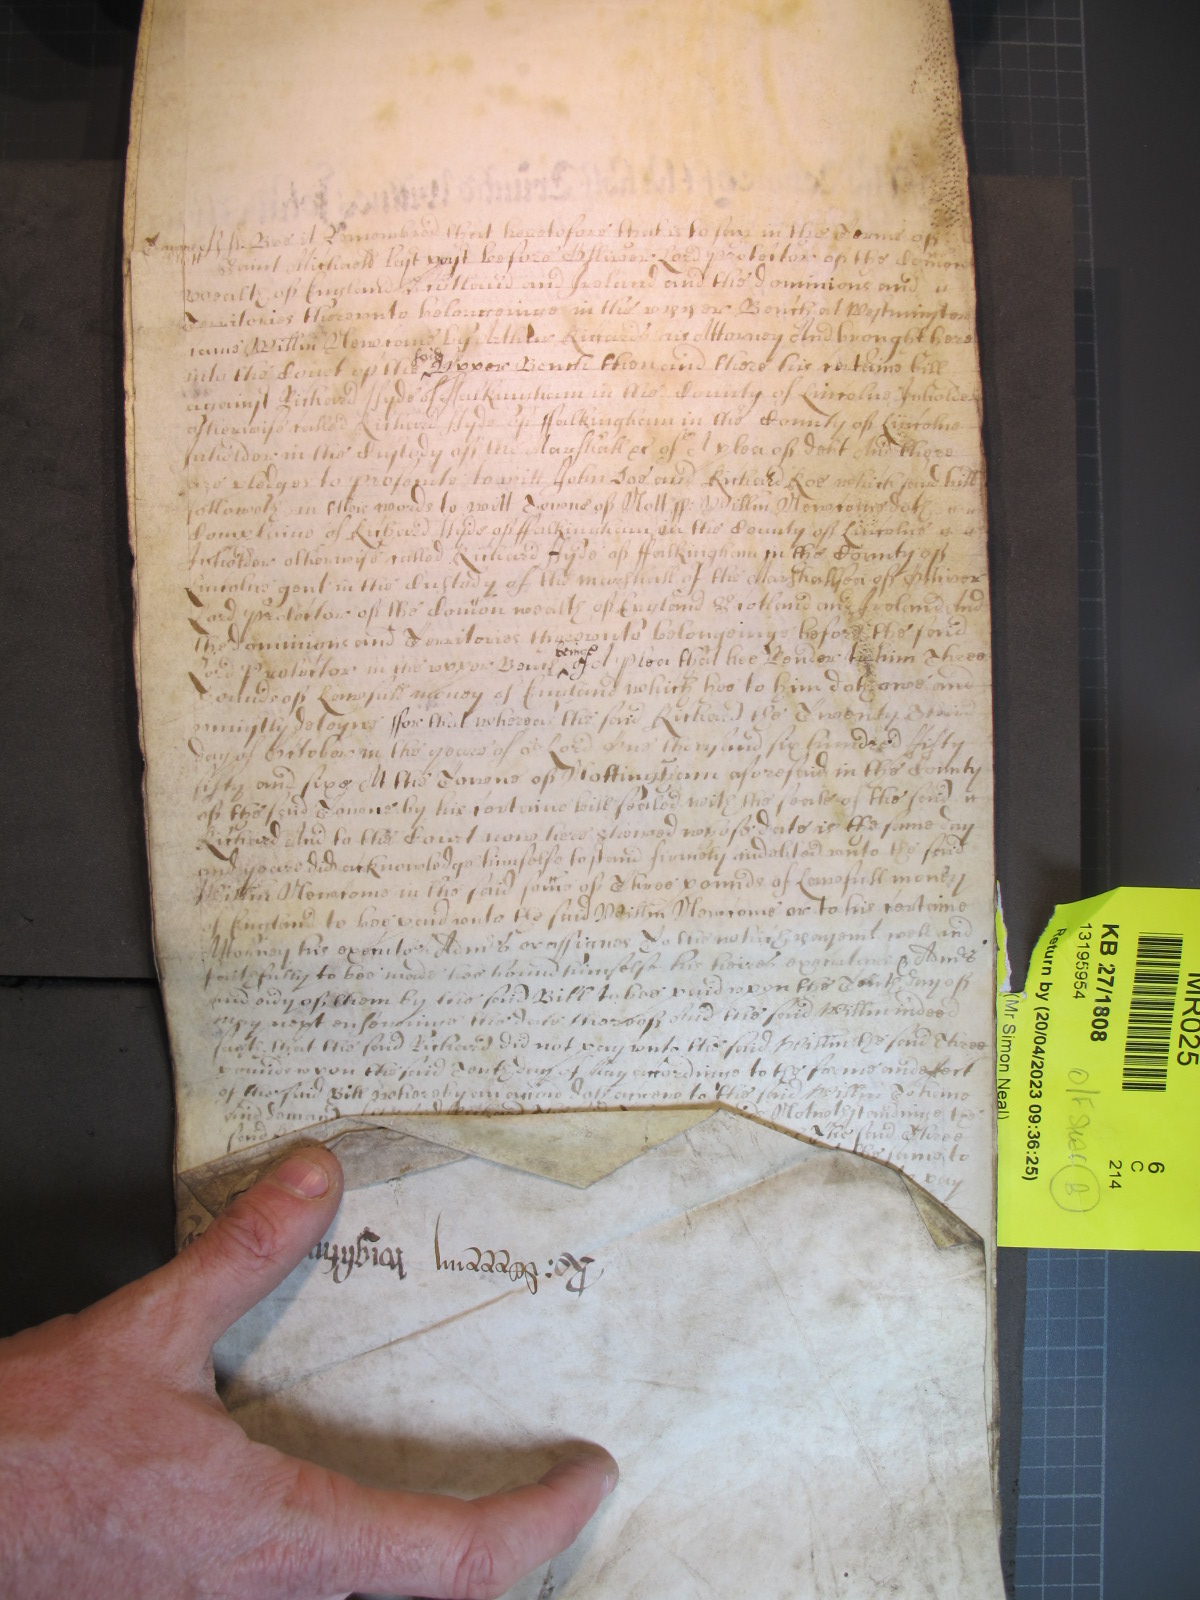 Bee it Remembred that heretofore that is to say in the Terme of
Saint Michaell last past before Olliver Lord Protector of the Comon
wealth of England Scotland and Ireland and the dominions and
Territories thereunto belongeinge in the upper Bench at Westminster
came Willm Newcome by Arthur Rickards his Attorney And brought here
into the Court of the said Upper Bench then and there his certaine bill
against Richard Hyde of ffalkingham in the County of Lincolne Inholder
otherwise called Richard Hyde of ffalkingham in the County of Lincolne
Inholder in the Custody of the Marshall &c of A plea of debt And there
are pledges to prosecute to witt John Doe and Richard Roe which said bill
followeth in these words to witt Towne of Nott ss Willm Newcome doth
Complaine of Richard Hyde of ffalkingham in the County of Lincolne
Inholder otherwise called Richard Hyde of ffalkingham in the County of
Lincolne gent in the Custody of the marshall of the Marshallsea of Olliver
Lord Protector of the Comon wealth of England Scotland and Ireland And
the dominions and Territories thereunto belongeinge before the said
Lord Protector in the upper Bench being of A Plea that hee Render to him Three
Pounds of Lawfull money of England which hee to him doth owe and
uniustly deteyne ffor that whereas the said Richard the Twenty Third
day of October in the yeare of o Lord One thousand six hundred fifty
fifty and sixe At the Towne of Nottingham aforesaid in the County
of the said Towne by his certaine bill sealed with the seale of the said
Richard And to the Court now here shewed whose date is the same day
and yeare did acknowledge himselfe to stand firmely indebted unto the said
Willm Newcome in the said sume of Three pounds of Lawfull money
of England to bee paid unto the said Willm Newcome or to his certaine
Attorney his executors Admrs or assignes To the which payemt well and
faithfully to bee made hee bound himselfe his heires executors & Admrs
and evy of them by the said Bill to bee paid upon the Tenth day of
May next ensueinge the date thereof And the said Willm indeed
saith that the said Richard did not pay unto the said Willm the said Three
pounds upon the said Tenth day of May accordinge to the forme and effect
of the said Bill whereby an accon doth accrue to the said Willm To have
and demand Notwthstandinge the
said The said Three
the same to
pay
Re:
MR025
KB 27/1808
13195954
Return by (20/04/2023 09:36:25)
(Mr Simon Neal)
6
C
214